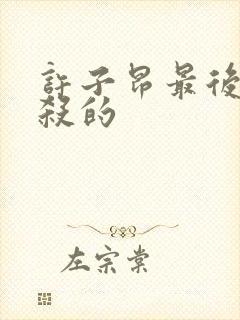 許子昂最後
殺的
左宗棠